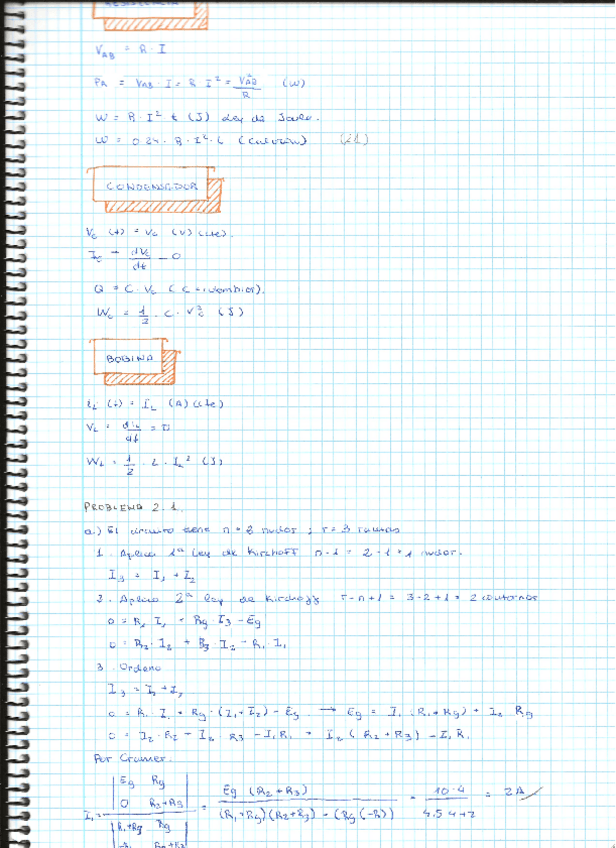 RESISTENCIA
V_AB = R · I
P_R = V_AB · I = R I² = V²_AB / R (W)
W = R · I² t (J) Ley de Joule.
W = 0.24 · R · I² · t (Calorías)
CONDENSADOR
V_c (t) = V_c (V) (cte).
I_c = dV_c / dt = 0
Q = C · V_c
W_c = 1/2 · C · V_c² (J)
BOBINA
i_L (t) = I_L (A) (cte)
V_L = di_L / dt = 0
W_L = 1/2 · L · I_L² (J)
PROBLEMA 2.1.
a.) El circuito tiene n = 2 nudos ; r = 3 ramas
1. Aplico 1ª Ley de Kirchoff n-1 = 2-1 = 1 nudos.
I_3 = I_1 + I_2
2. Aplico 2ª ley de Kirchoff r-n+1 = 3-2+1 = 2 contornos
0 = R_1 I_1 + R_g · I_3 - E_g
0 = R_2 · I_2 + R_3 · I_2 - R_1 · I_1
3. Ordeno
I_3 = I_1 + I_2
0 = R_1 · I_1 + R_g · (I_1 + I_2) - E_g → E_g = I_1 (R_1 + R_g) + I_2 R_g
0 = I_2 · R_2 + I_2 · R_3 - I_1 R_1 = I_2 (R_2 + R_3) - I_1 R_1
Por Cramer.
E_g R_g
I_1 = 0 R_2 + R_3 = E_g (R_2 + R_3) / (R_1 + R_g) (R_2 + R_3) - (R_g (-R_1)) = 10 · 4 / = 2A
R_1 + R_g R_g